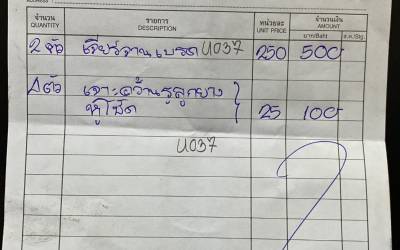 ADDRESS
จำนวน รายการ หน่วยละ จำนวนเงิน
QUANTITY DESCRIPTION UNIT PRICE AMOUNT
บาท/Baht ส.ต./Stg.
2 ตัว เจียร์จานเบรค U037 250 500
4 ตัว เจาะคว้านรูลูกยาง
หูโช้ค 25 100
U037